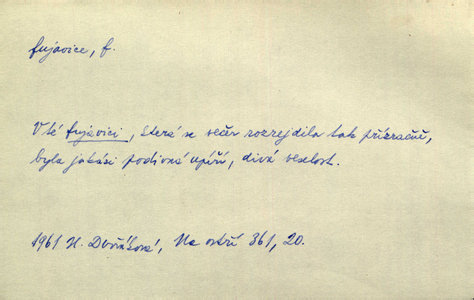 fujavice, f.
V té fujavici, která se večer rozrejdila tak přízračně,
byla jakási podivná upíří, divá veselost.
1961 H. Dvořáková, Na ostří 361, 20.